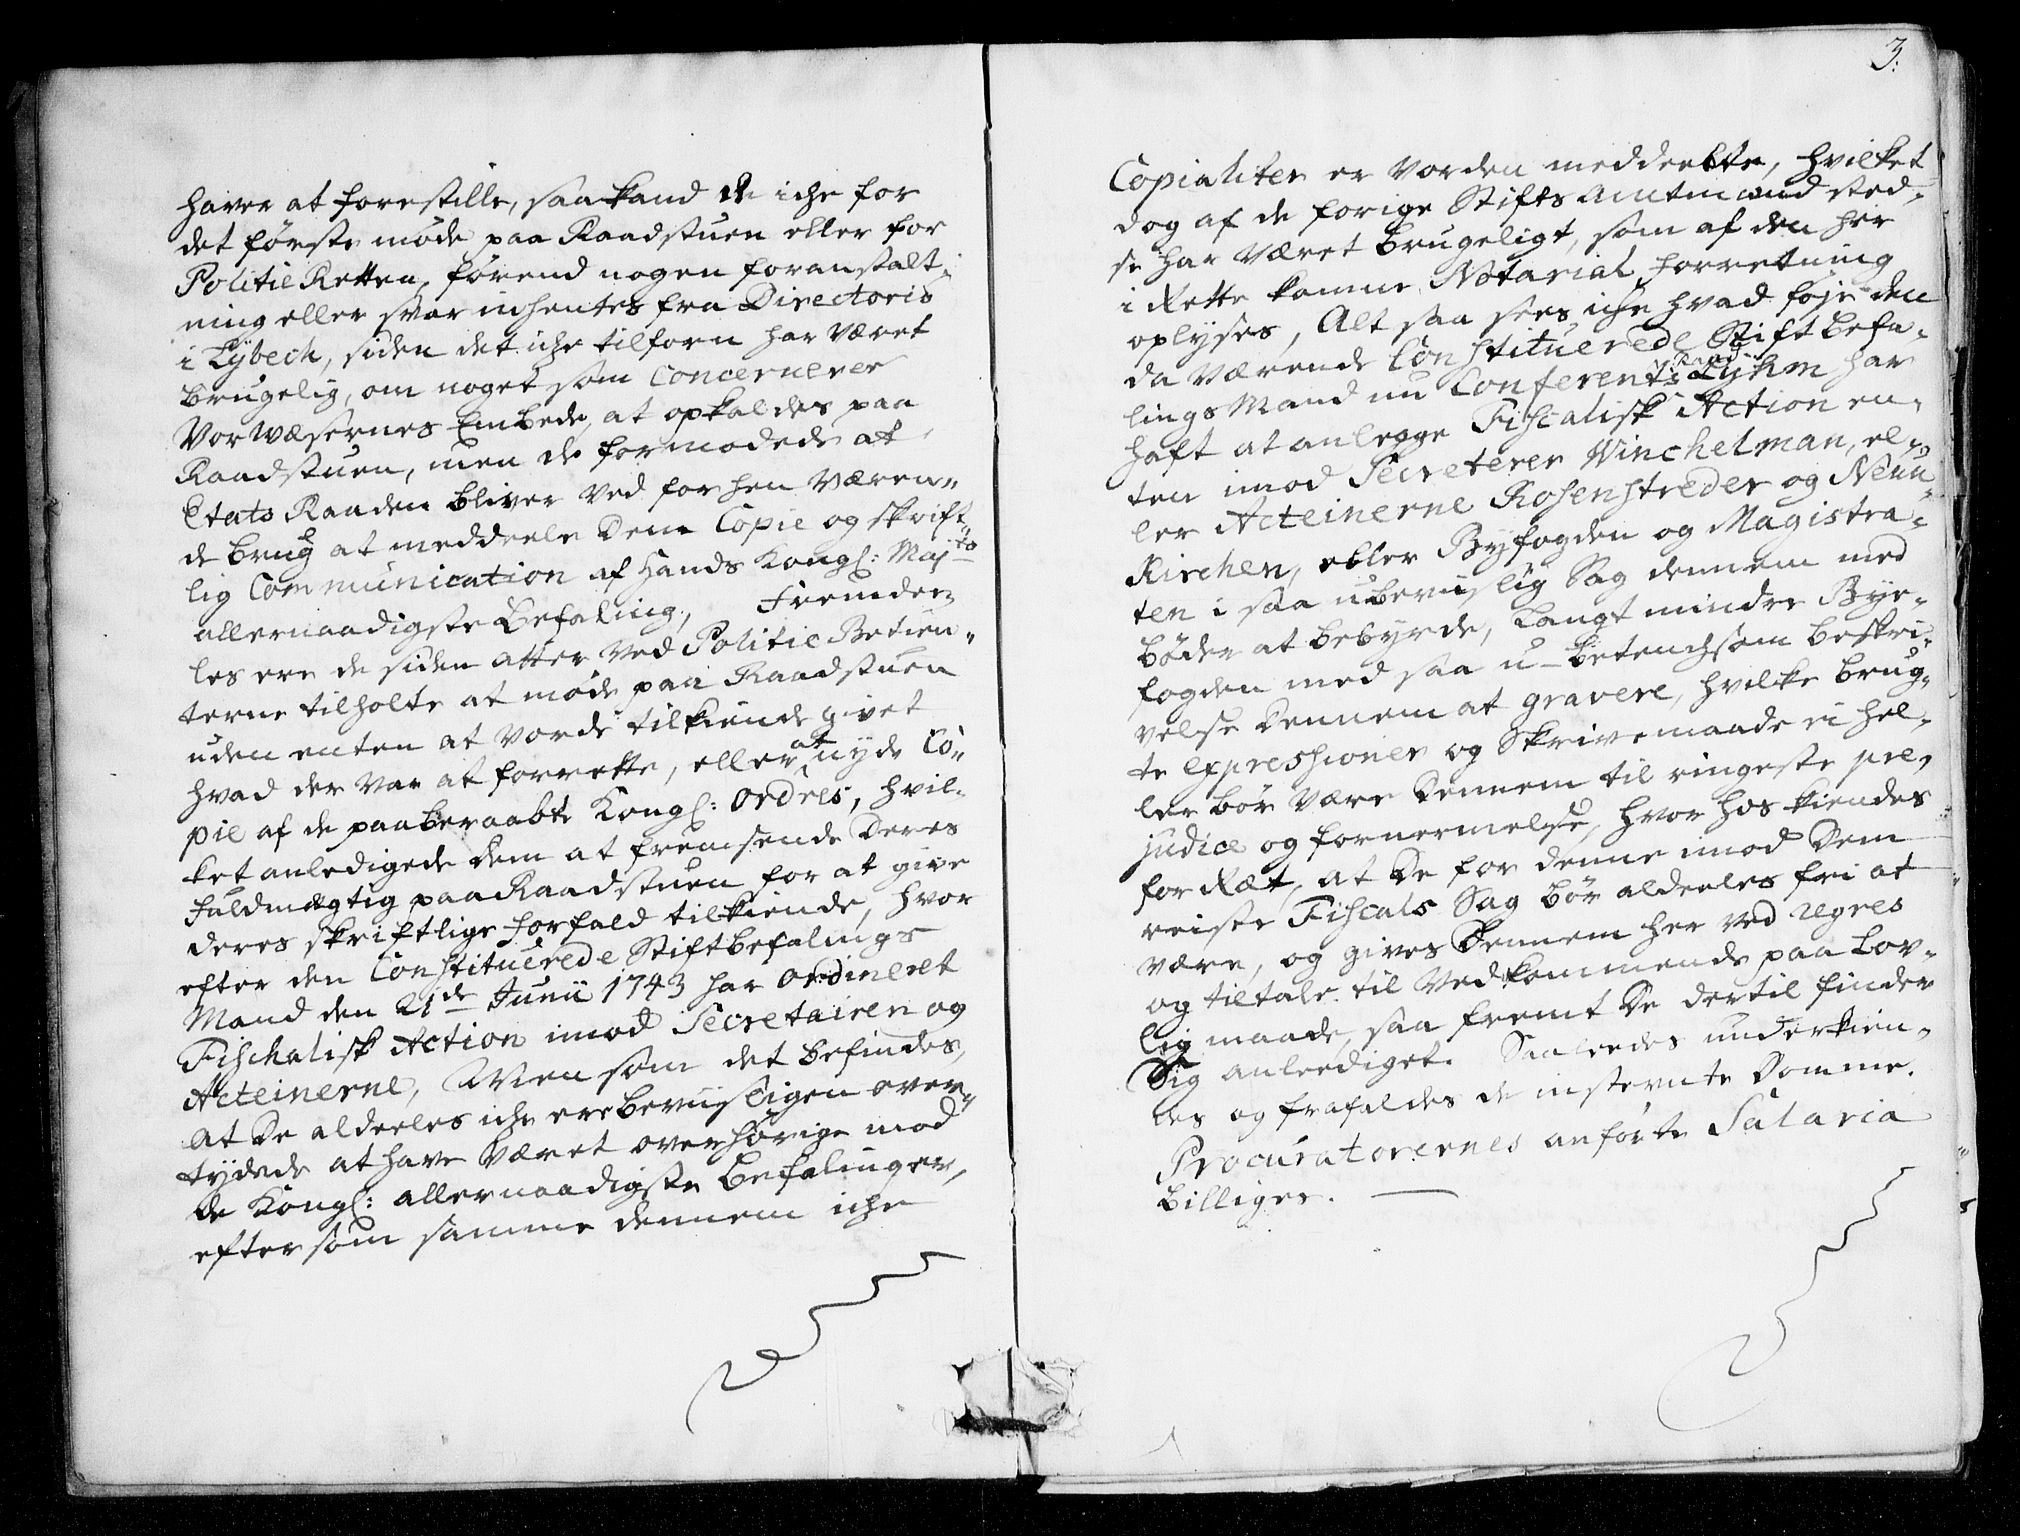 haver at forestille, saa kand de iche for
det første møde paa Raadstuen eller for
Politie Retten, førend nogen foranstalt-
ning eller svar inhentes fra Directoris
i Lÿbech, siden det iche tilforn har været
brugelig, om noget som Concernerer
Vorwæsernes Embede, at opkaldes paa
Raadstuen, men de formodede at
Etats Raaden bliver ved forhen væren-
de brug at meddeele Dem Copie og skrift-
lig Communication af Hands Kongl: Majts
allernaadigste Befaling, Fremdee-
les ere de siden atter ved Politie Betien-
terne tilholte at møde paa Raadstuen
uden enten at vorde tilkiende givet
hvad der var at forrette, eller at nyde Co-
pie af de paaberaabte Kongl: Ordres, hvil-
ket anledigede dem at fremsende Deres
fuldmægtig paa Raadstuen for at give
deres skriftlige forfald tilkiende, hvor
efter den Constituerede Stiftbefalings
Mand den 21de Junii 1743 har ordineret
Fischalisk Action imod Secretairen og
Acteinerne, Mien som det befindes,
at De aldeeles iche ere beviisligen over-
tydede at have været overhørige mod
de Kongl: allernaadigste Befalinger,
eftersom samme dennem iche
3.
Copialiter er vorden meddeelte, hvilket
dog af de forige Stifts Amtmænd sted-
se har været brugeligt, som af den her
i Rette komne Notarial forretning
oplyses, Alt saa sees iche hvad føje den
da værende Constituerede Stiftbefa-
lings Mand nu Conferentz Raad Lÿhm har
haft at anlegge Fiscalisk Action en-
ten imod Secreterer Winchelman, el-
ler Acteinerne Rosenstreder og Neuu-
Kirchen, eller Byfogden og Magistra-
ten i saa ubeviislig Sag dennem med
bøder at bebyrde, langt mindre Bye-
fogden med saa u-betenchsom beskri-
velse Dennem at gravere, hvilke brug-
te expressioner og Skrivemaade ei hel-
ler bør være Dennem til ringeste præ-
judice og fornermelse, hvor hos kiendes
for Ræt, at De for denne imod Dem
reiste Fiscals Sag bør aldeeles fri at
være, og gives Dennem her ved regres
og tiltale til Vedkommende paa Lov-
lig maade, saa fremt De dertil finder
Sig anleediget. Saaleedes underkien-
des og frafaldes de instevnte Domme.
Procuratorernes anførte Salaria
billiges.